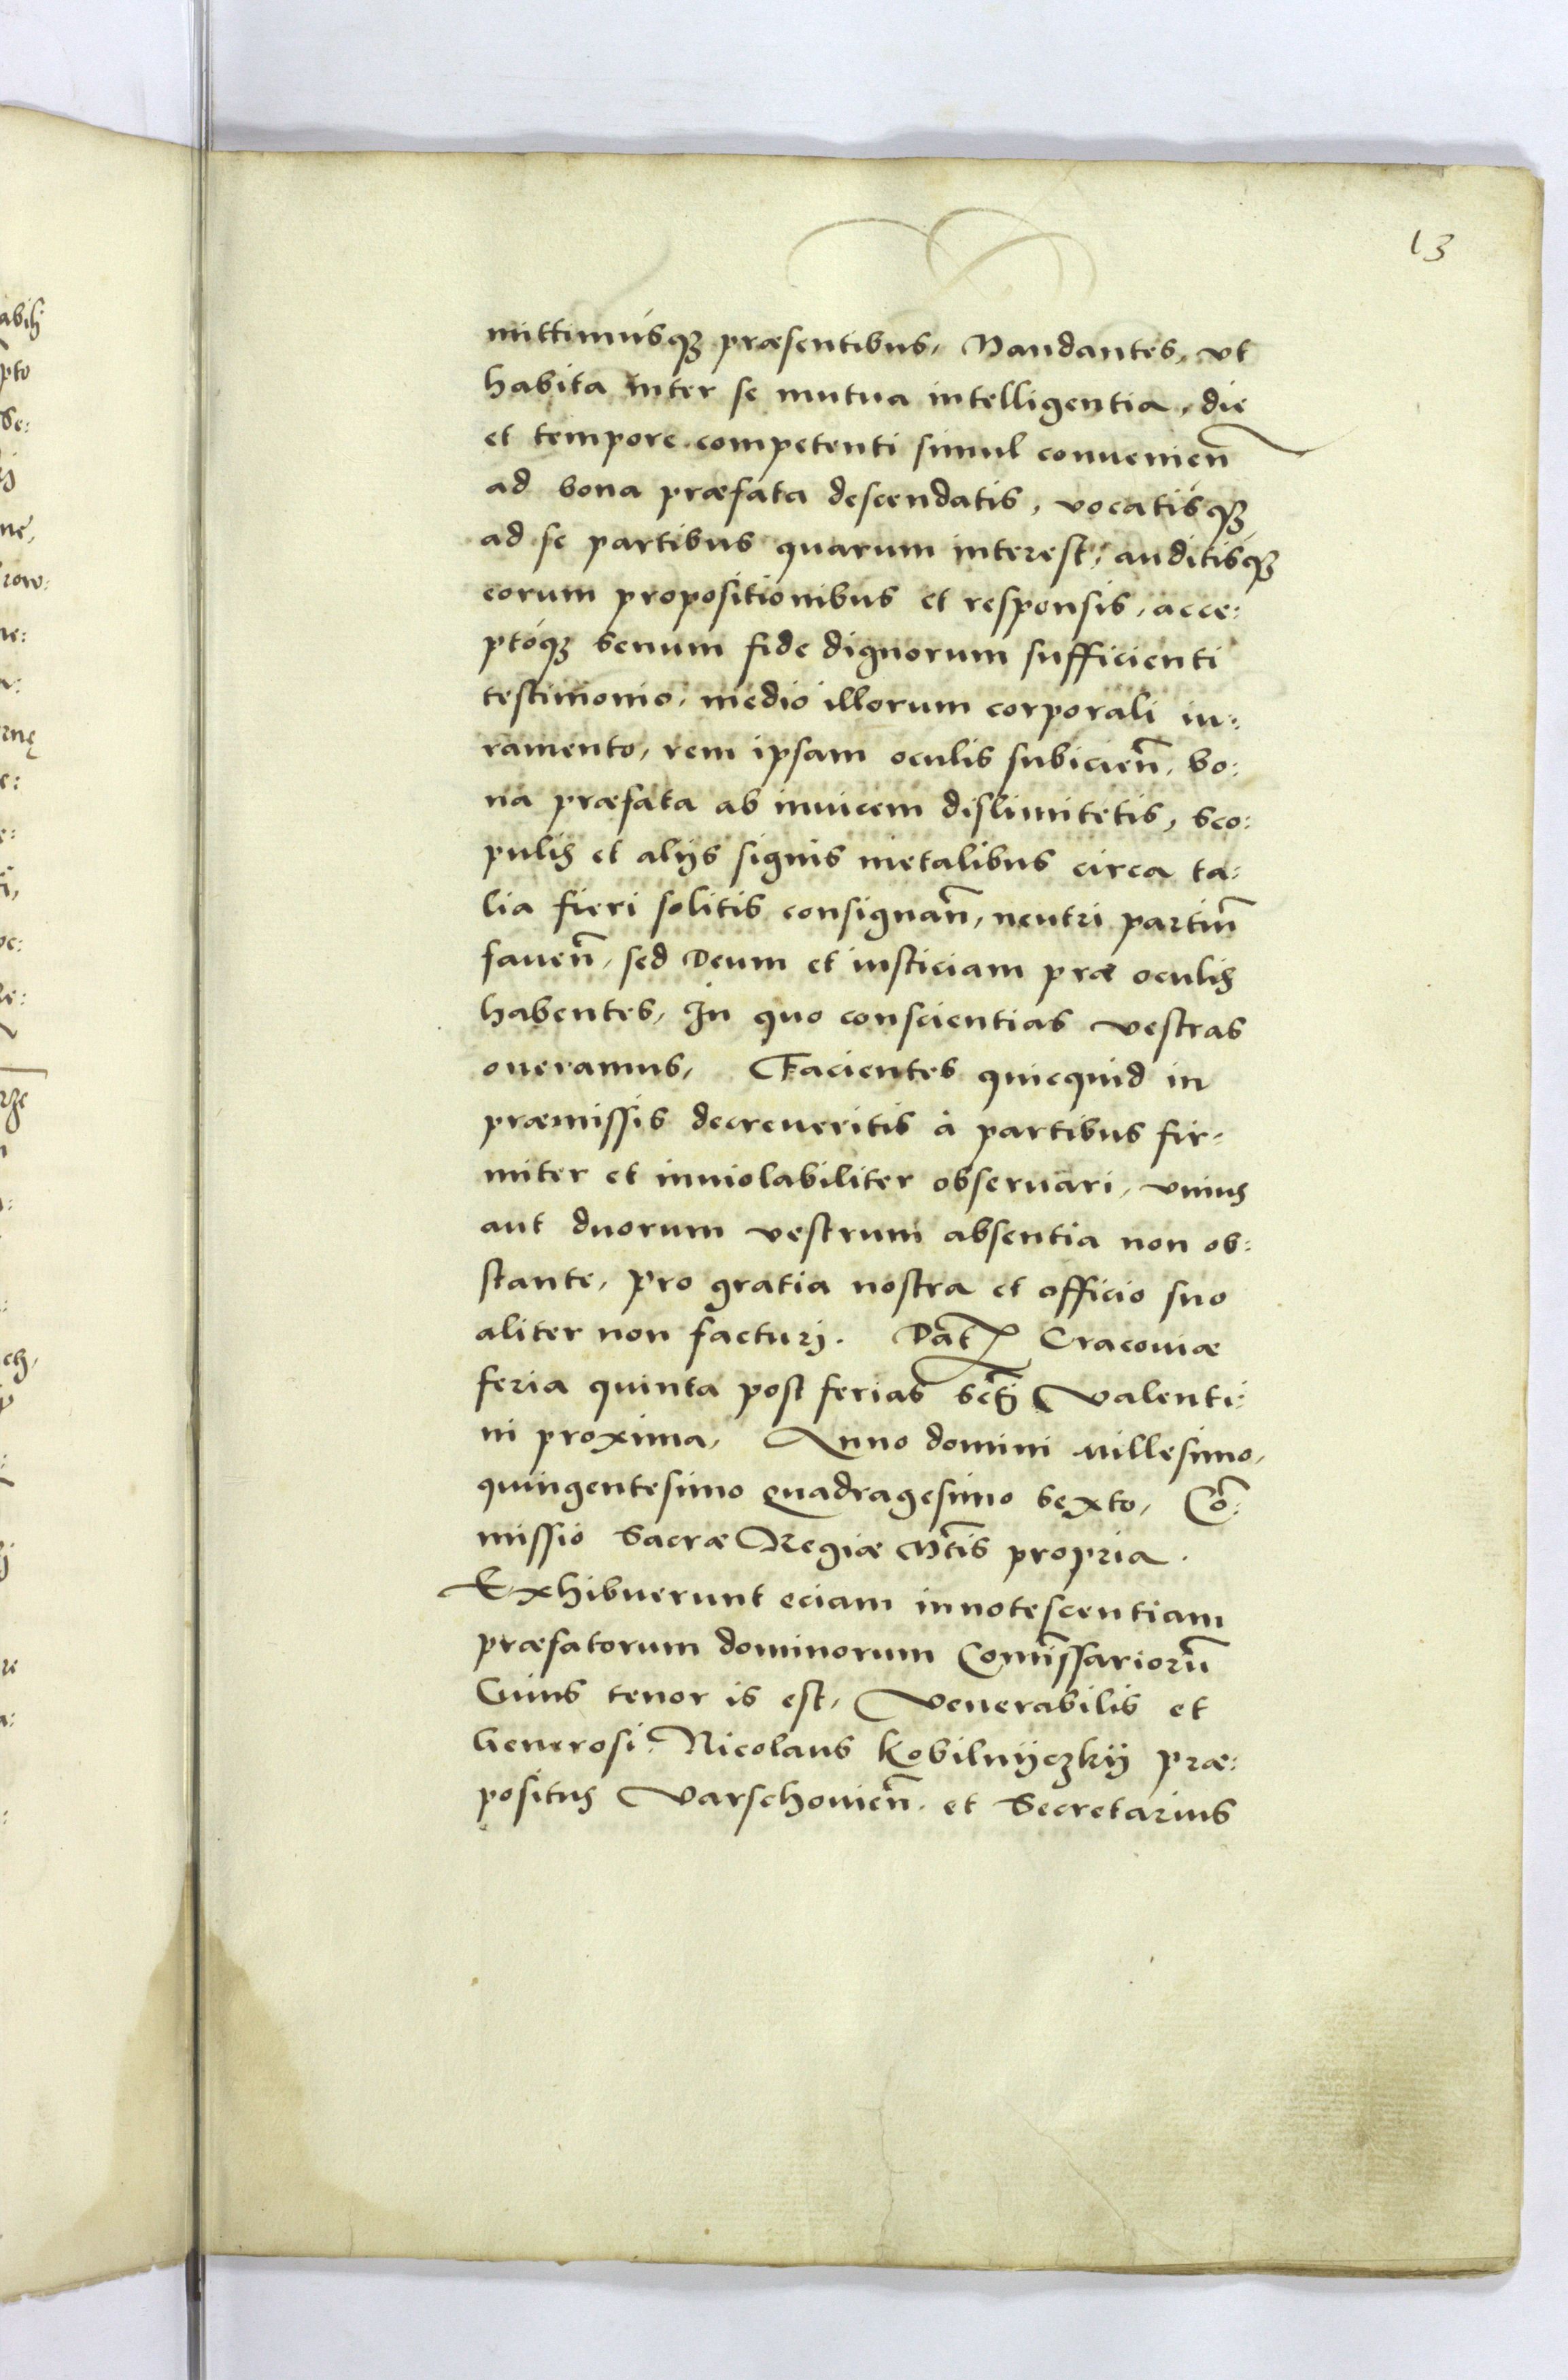 13
mittimúsqȝ præsentibus, Mandantes, vt
habita inter se mutua intelligentia, die
et tempore competenti simul conuenien̄
ad bona præfata descendatis, vocatísqȝ
ad se partibus quarum interest, auditísqȝ
eorum propositionibus et responsis, acce:
ptóqȝ senum fide dignorum sufficienti
testimonio, medio illorum corporali iu:
ramento, rem ipsam oculis subicien̄, bo:
na præfata ab inuicem dislimitetis, sco:
pulis et alijs signis metalibus circa ta:
lia fieri solitis consignan̄, neutri partiū
fauen̄, sed Deum et iusticiam præ oculis
habentes, In quo conscientias vestras
oneramus, Facientes quicquid in
præmissis decreueritis à partibus fir:
miter et inuiolabiliter obseruari, vnius
aut duorum vestrum absentia non ob:
stante, pro gratia nostra et officio suo
aliter non facturj. Dat̄ Cracouiæ
feria quinta post ferias sct̄i Valenti:
ni proxima, Anno domini millesimo,
quingentesimo quadragesimo sexto, Cō:
missio Sacræ Regiæ Mt̄is propria.
Exhibuerunt eciam innotescentiam
præfatorum dominorum Com̄issariorū
Cuius tenor is est, Venerabilis et
Generosi, Nicolaus Kobilnÿczkÿ præ:
positus Varschouien̄. et Secretarius